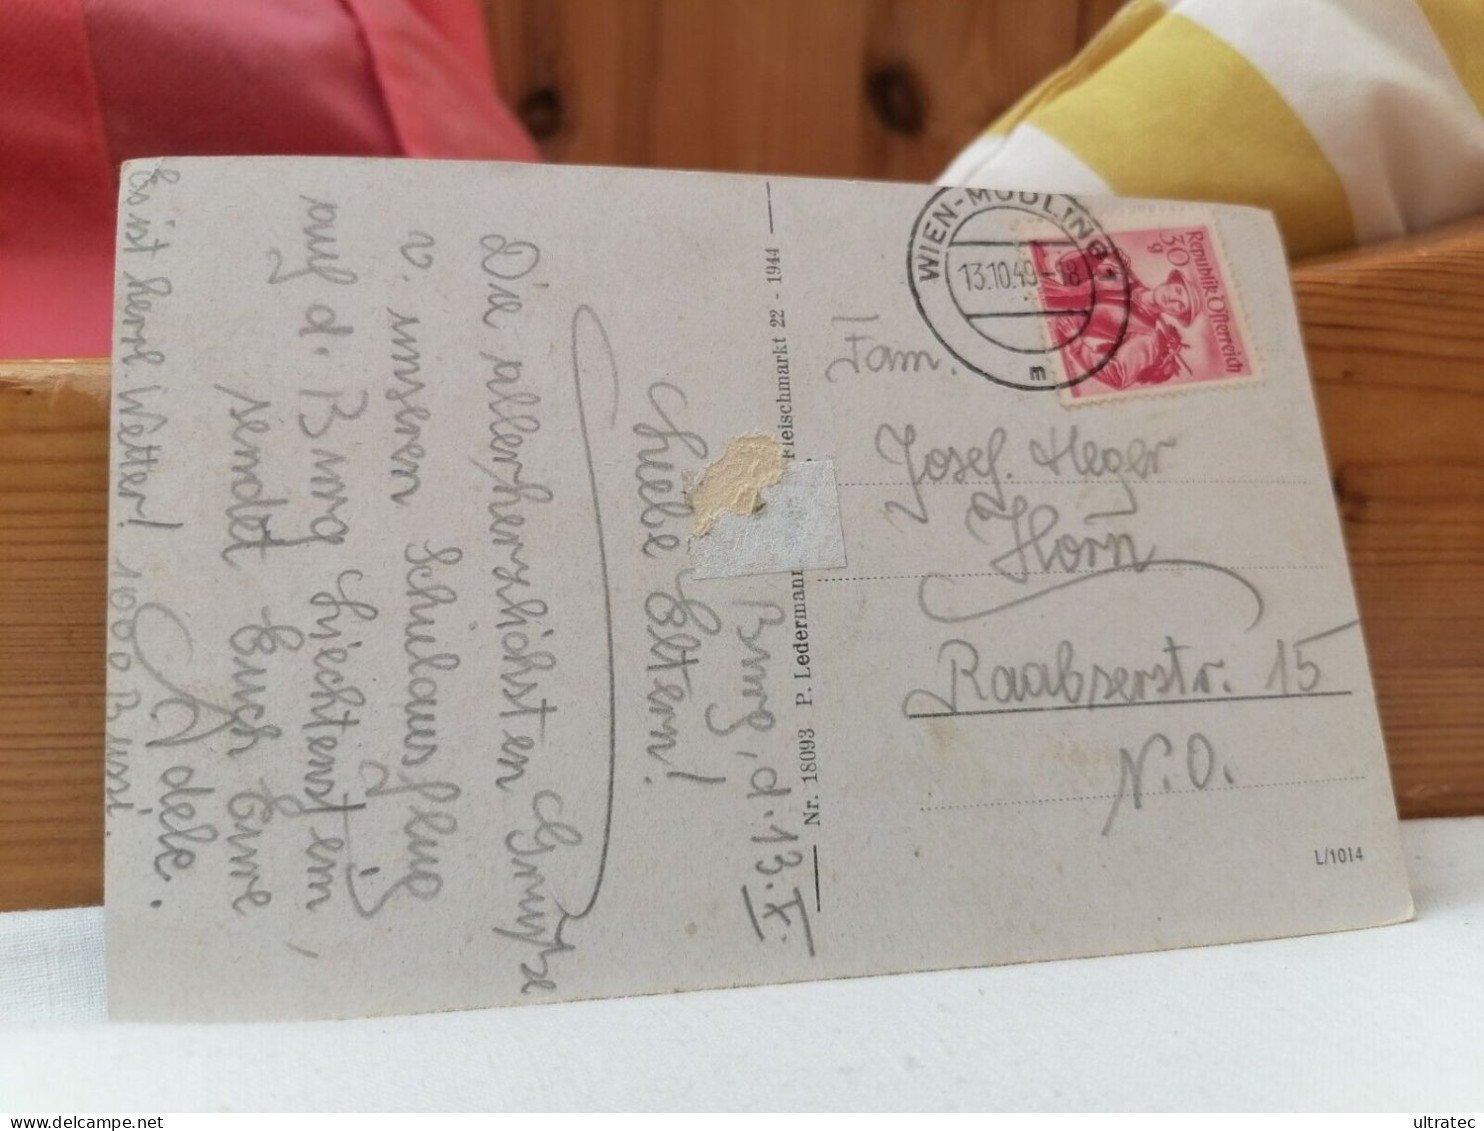 Burg, d. 13.X.
Liebe Eltern!
Die allerherzlichsten Grüße
v. unserem Schulausflug
auf d. Burg Liechtenstein,
sendet Euch Eure
Adele.
Es ist herrl. Wetter! 1000 Bussi.
Nr. 18093 P. Ledermann Fleischmarkt 22 - 1944
WIEN-MÖDLING 1
13.10.49-18
m
Republik Österreich
30 g
Fam.
Josef Heger
Horn
Raabserstr. 15
N.Ö.
L/1014
ultratec